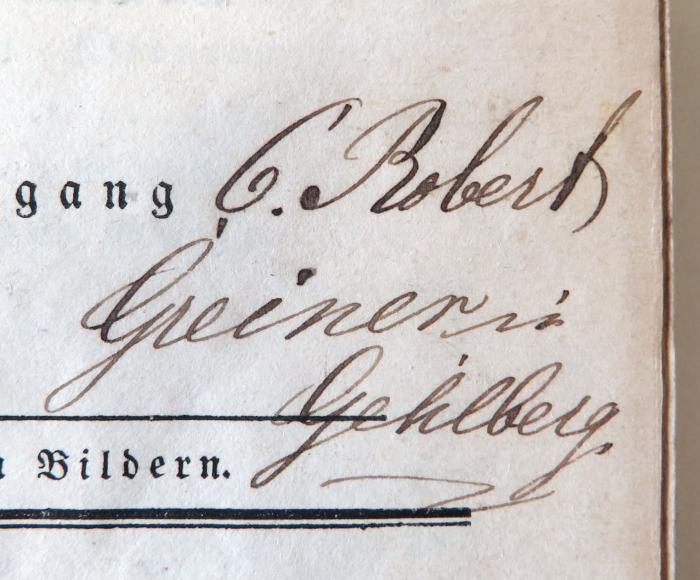 gang C. Robert
Greiner in
Gehlberg
Bildern.